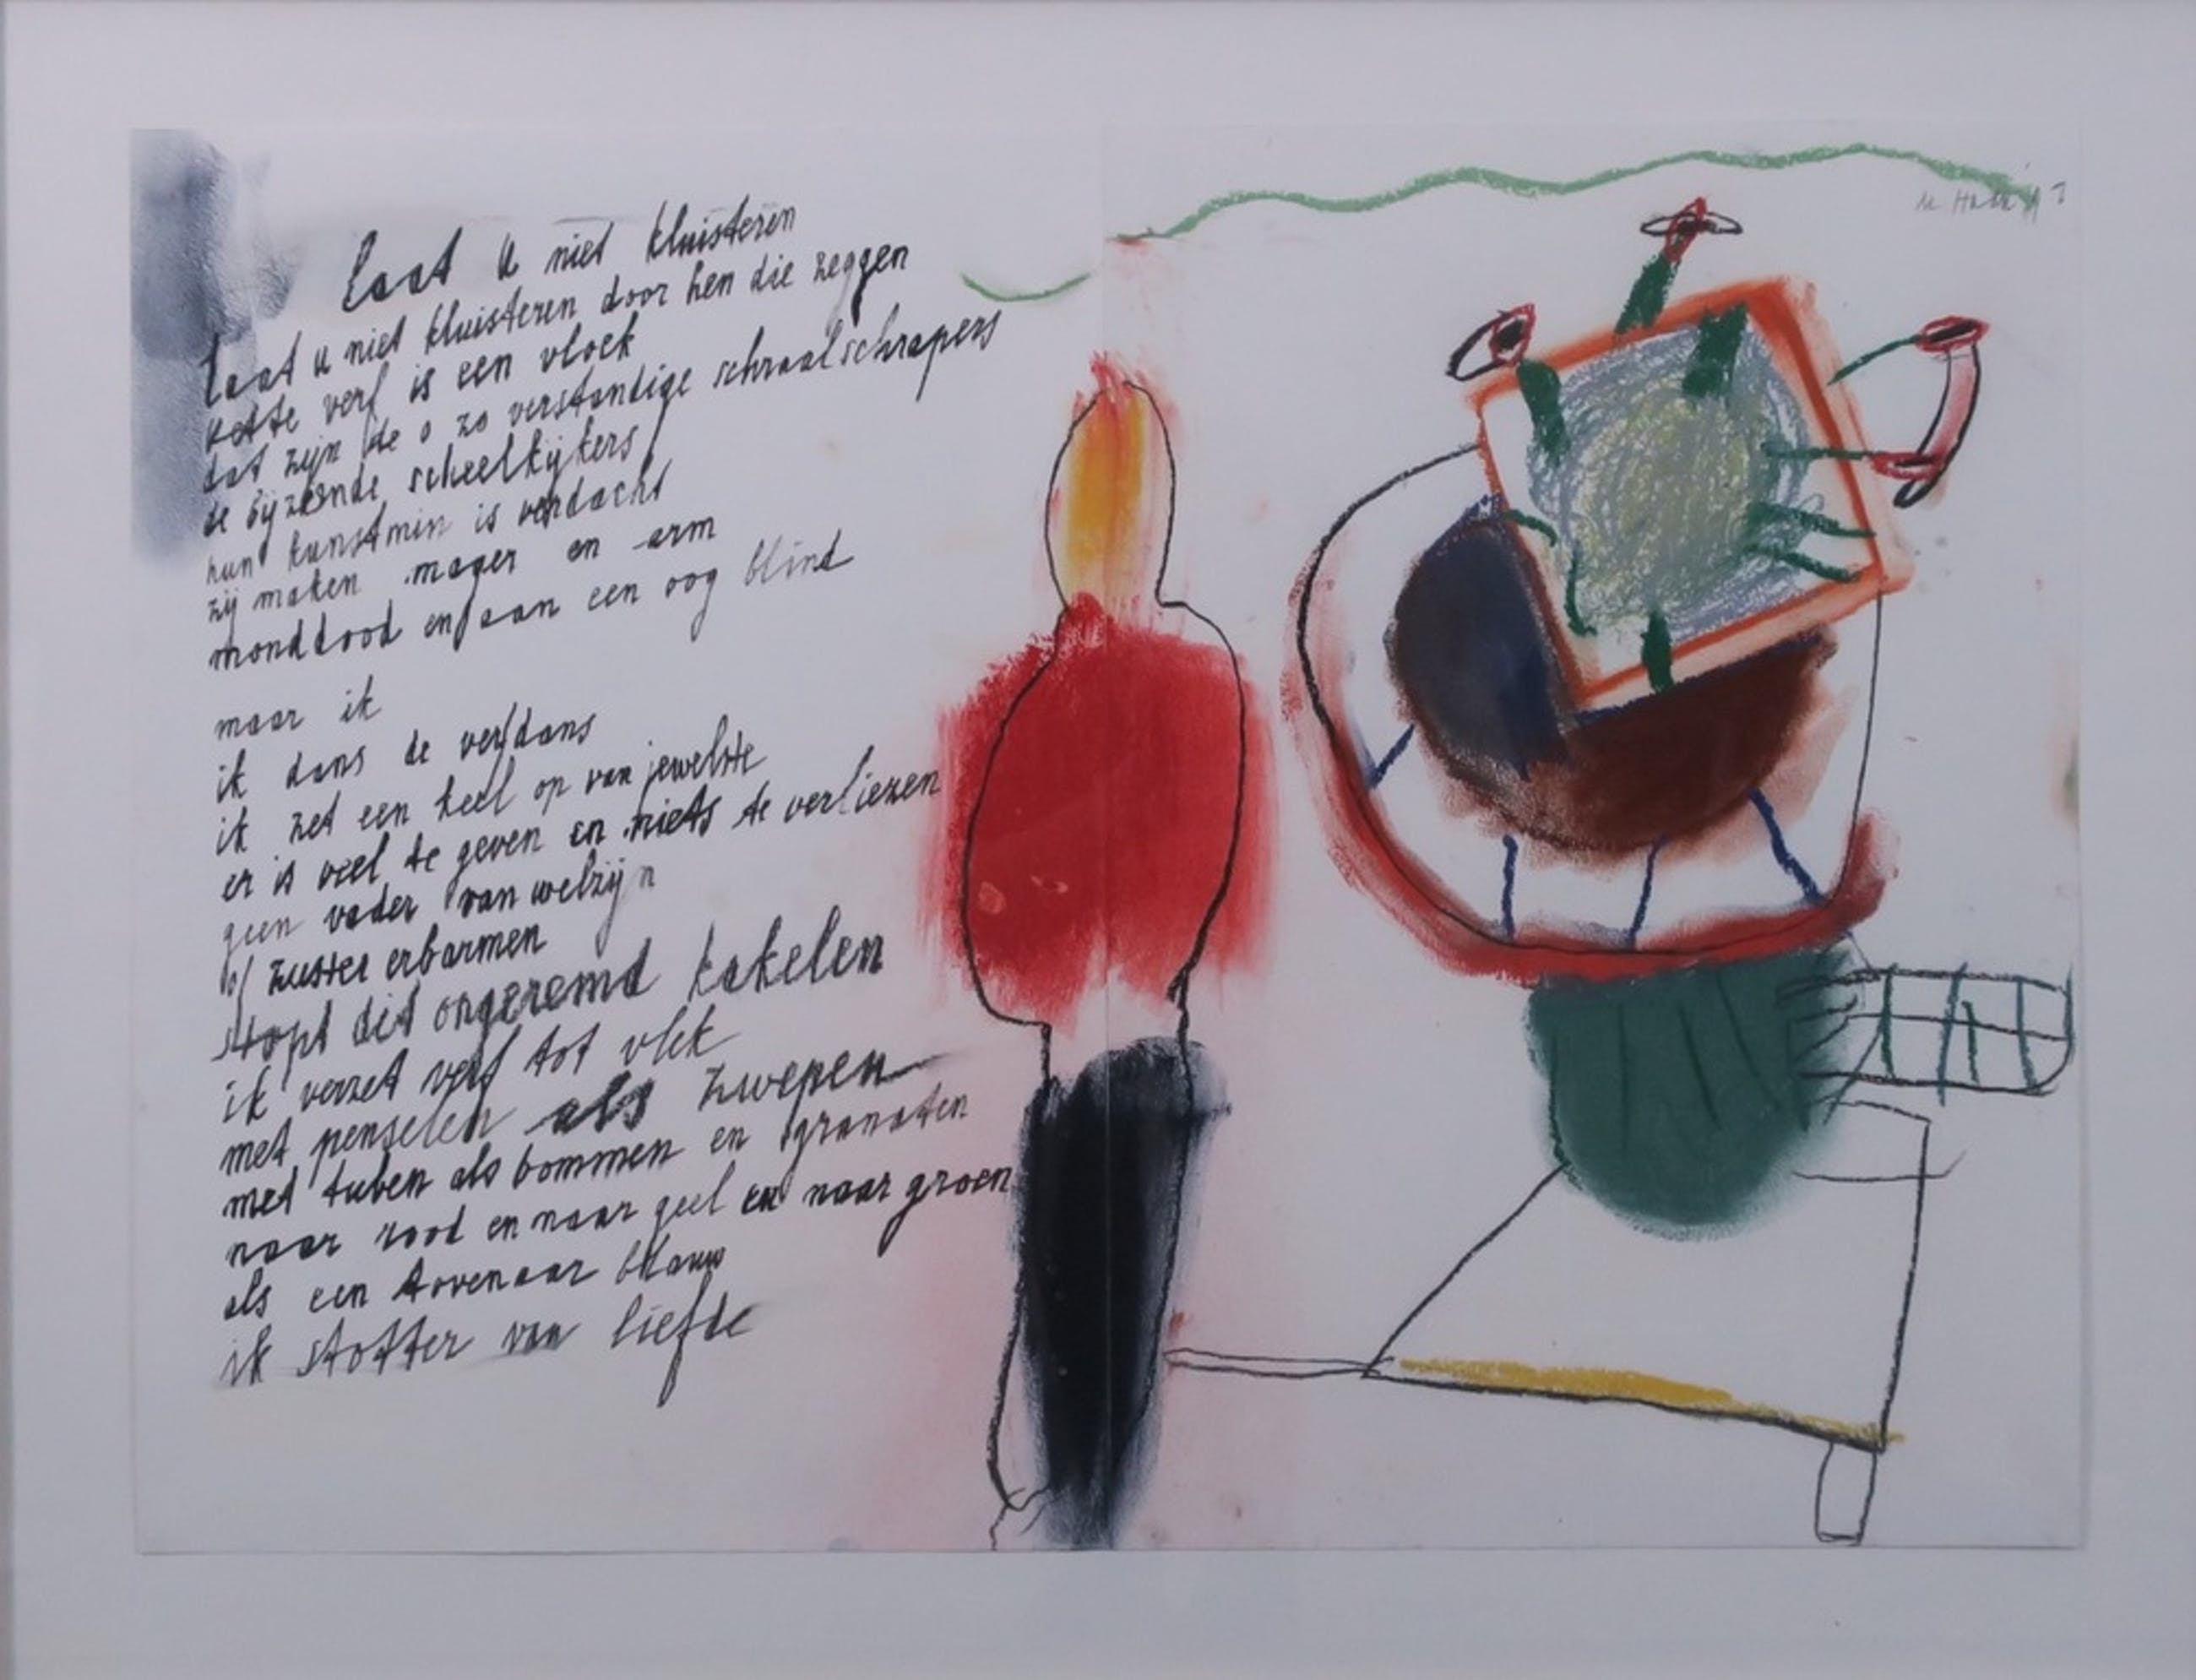 laat u niet kluisteren
laat u niet kluisteren door hen die zeggen
vette verf is een vloek
dat zijn de o zo verstandige schraalschrapers
de bijziende scheelkijkers
hun kunstmin is verdacht
zij maken mager en arm
monddood en aan een oog blind
maar ik
ik dans de verfdans
ik zet een keel op van jewelste
er is veel te geven en niets te verliezen
geen vader van welzijn
of zuster erbarmen
stopt dit ongeremd kakelen
ik verzet verf tot vlek
met penselen als zwepen
met tuben als bommen en granaten
naar rood en naar geel en naar groen
als een tovenaar blauw
ik stotter van liefde